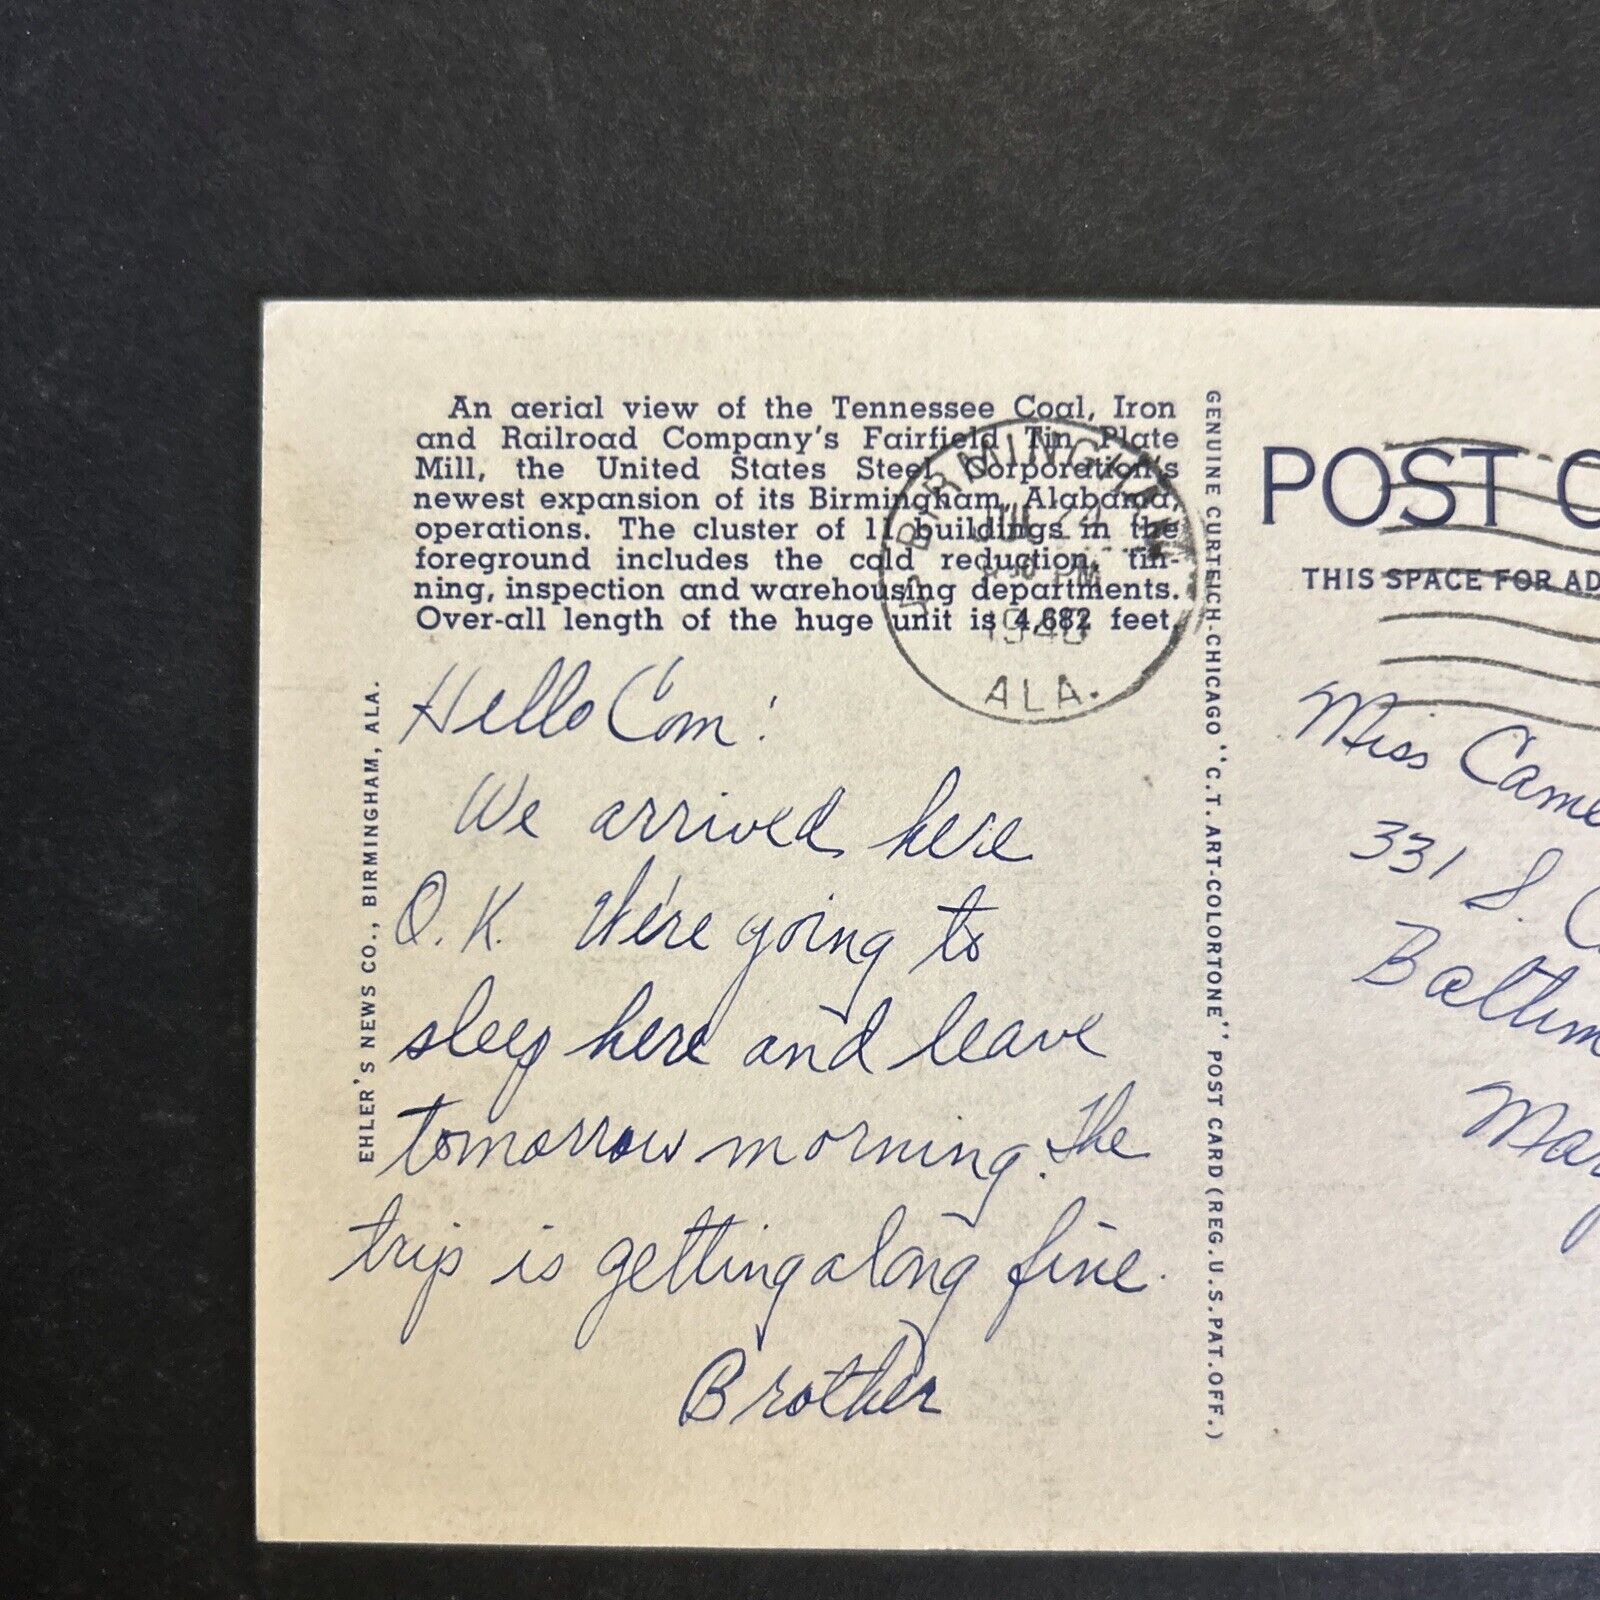 An aerial view of the Tennessee Coal, Iron
and Railroad Company's Fairfield Tin Plate
Mill, the United States Steel Corporation's
newest expansion of its Birmingham, Alabama,
operations. The cluster of 11 buildings in the
foreground includes the cold reduction, tin-
ning, inspection and warehousing departments.
Over-all length of the huge unit is 4,682 feet.
BIRMINGHAM
PM
ALA.
Hello Cam!
We arrived here
O.K. We're going to
sleep here and leave
tomorrow morning. The
trip is getting along fine.
Brother
EHLER'S NEWS CO., BIRMINGHAM, ALA.
GENUINE CURTEICH-CHICAGO "C.T. ART-COLORTONE" POST CARD (REG. U.S. PAT. OFF.)
POST C
THIS SPACE FOR AD
Miss Came
331 S. C
Baltim
Mary